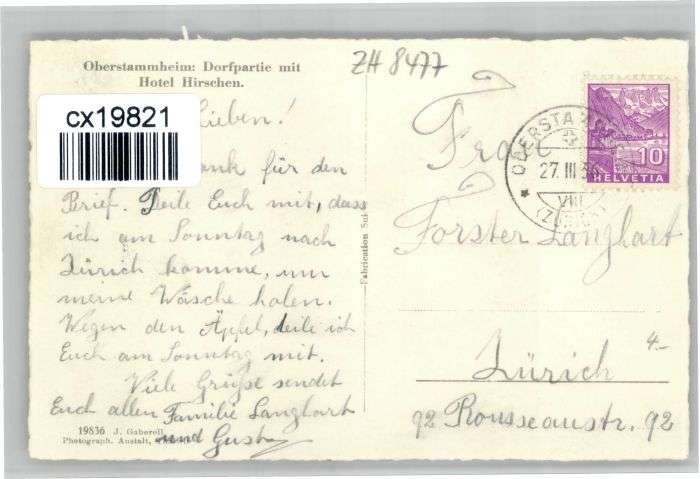 Oberstammheim: Dorfpartie mit
Hotel Hirschen.
ZH 8477
cx19821
Lieben!
für den
Brief. Teile Euch mit, dass
ich am Sonntag nach
Zürich komme, um
meine Wäsche holen.
Wegen den Äpfel, teile ich
Euch am Sonntag mit.
Viele Grüsse sendet
Euch allen Familie Langhart
und Gust
19836 J. Gaberell
Photograph. Anstalt,
Fabrication
10
HELVETIA
27. III
VIII
(ZÜRICH)
Forster Langhart
4.-
Zürich
92 Rousseaustr. 92